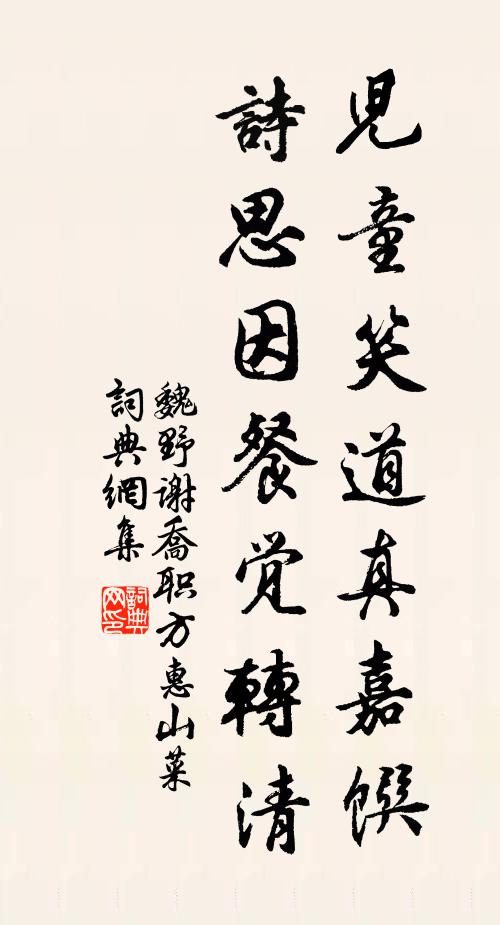 兒童笑道真嘉饌
詩思因餐覚轉清
魏野谢喬职方惠山菜
詞典網集
詞典网印